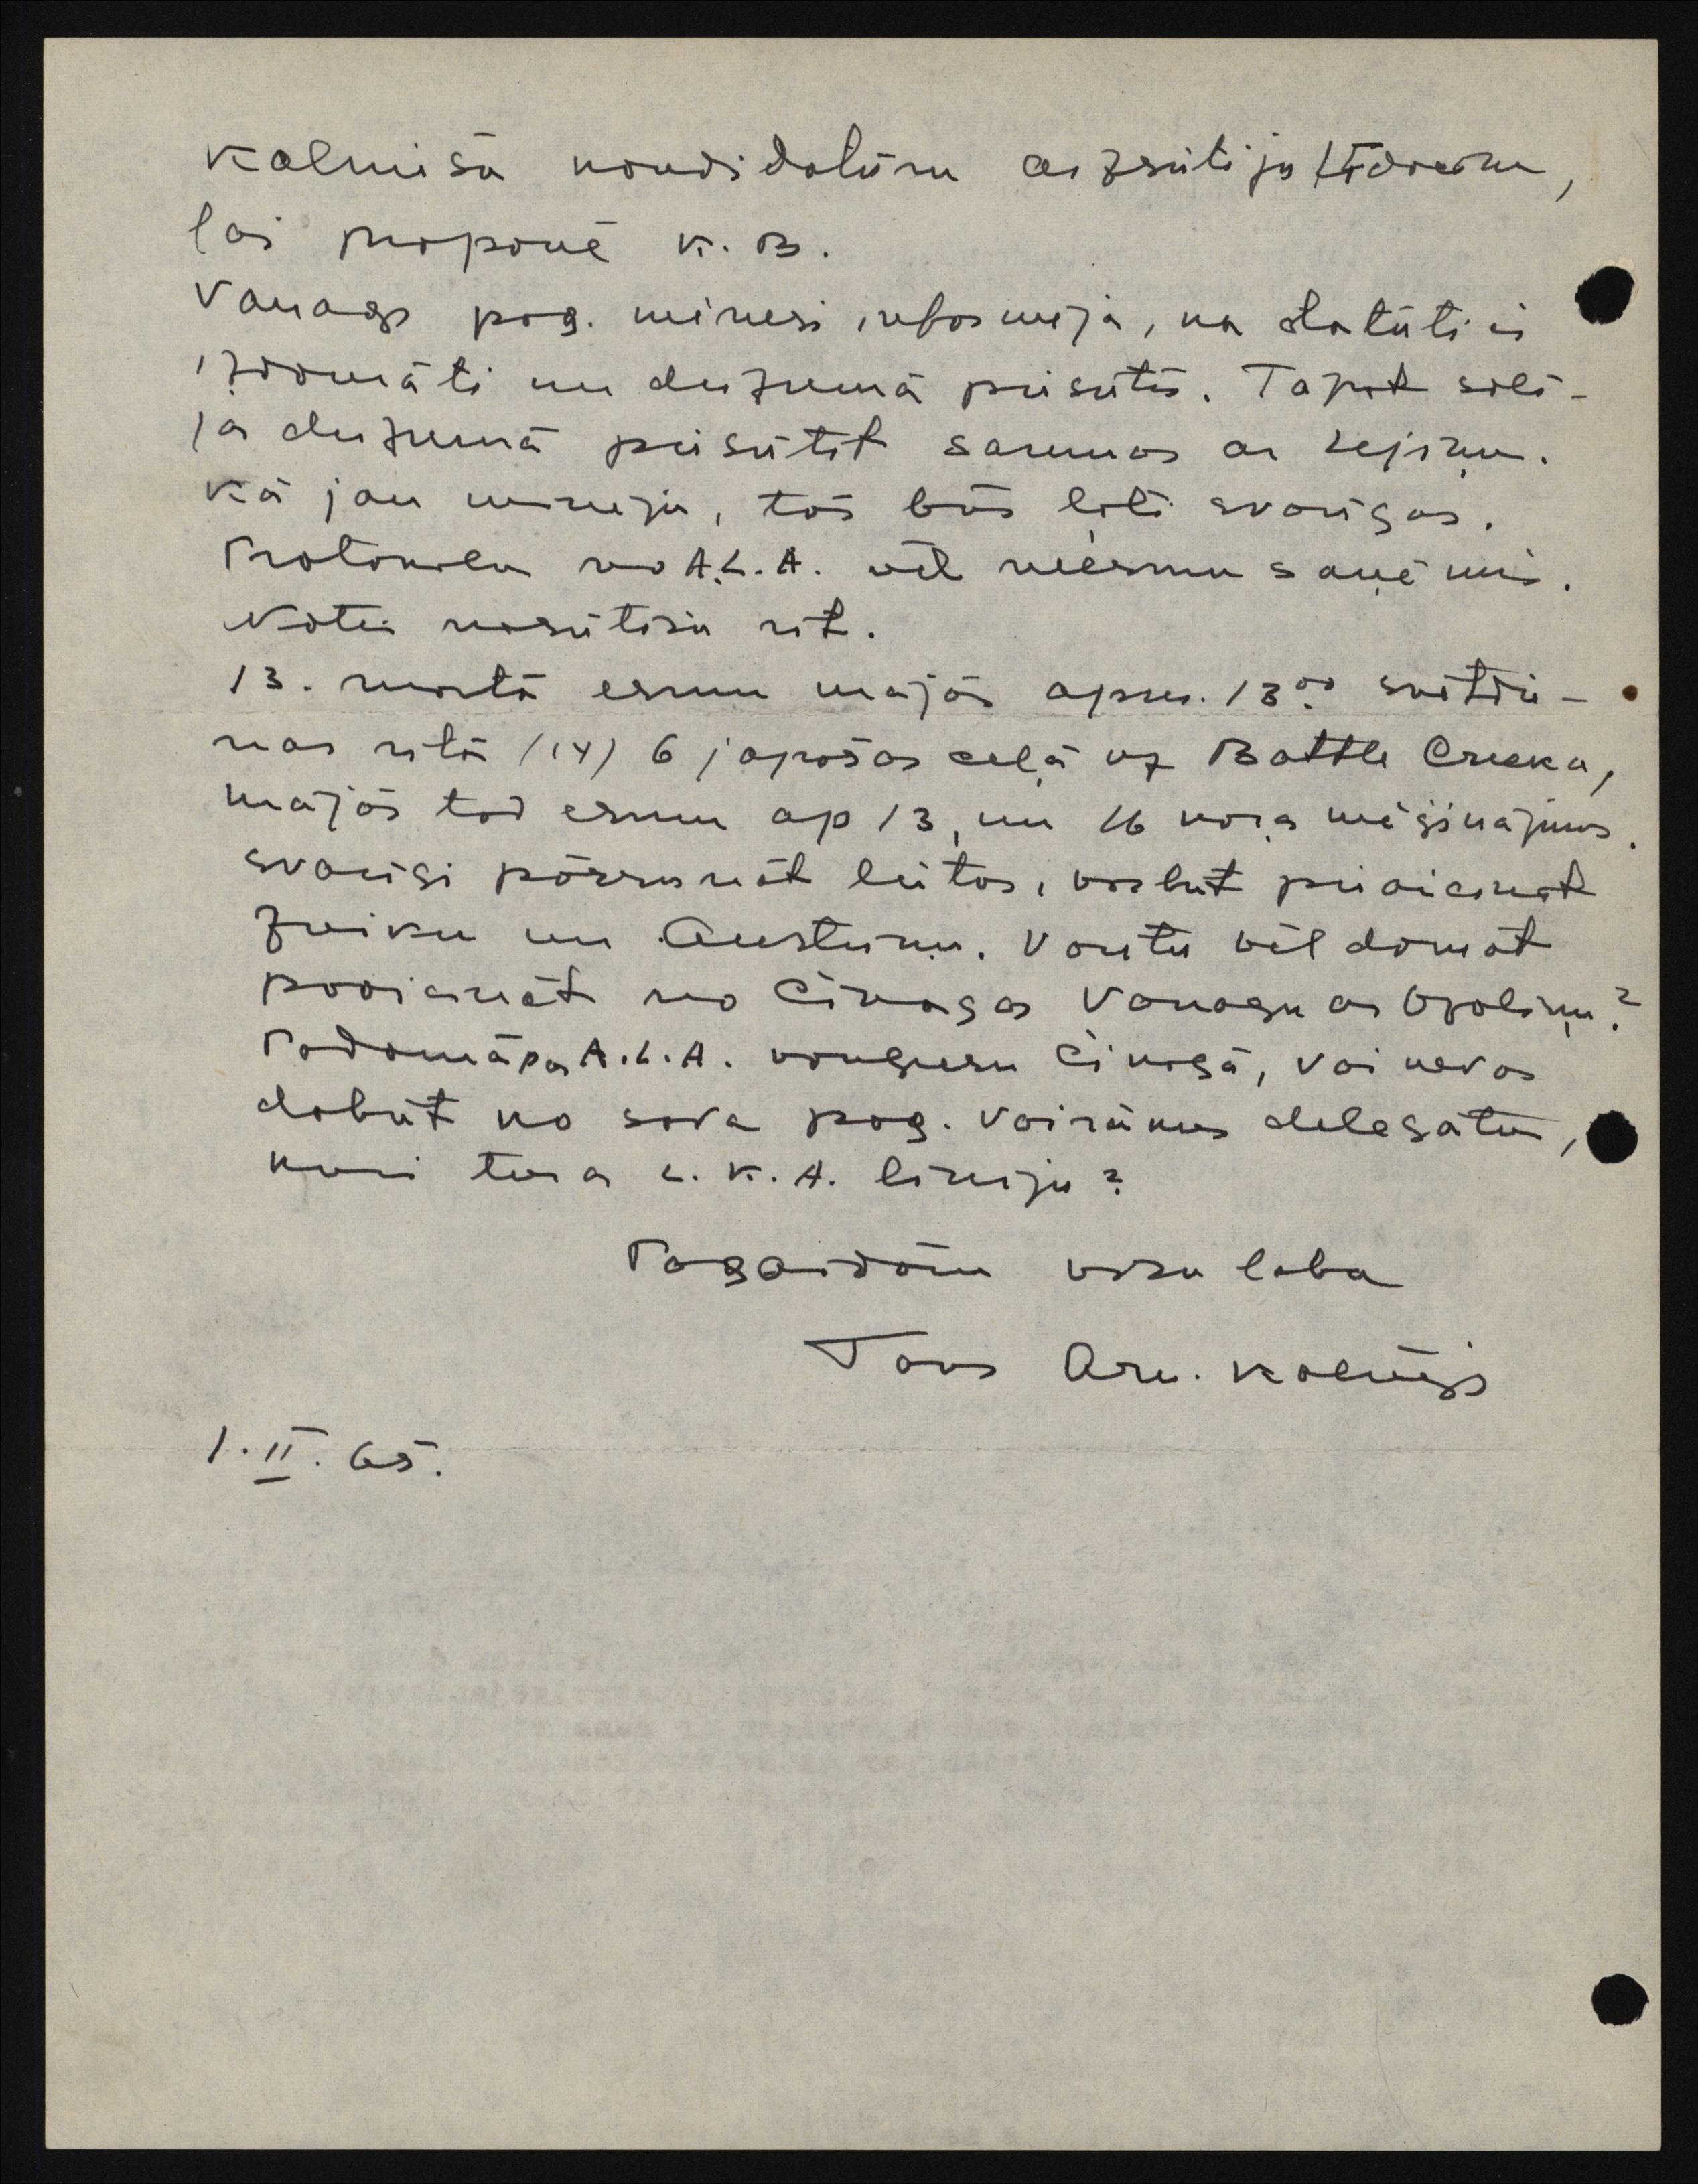 Kalniņa kandidatūru aizsūtiju
lai proponē K. B.
Vanags pag. mēnesi informēja, ka statūti ir
izdomāti un decembrī piesūtīs. Tāpat solī-
ja decembrī piesūtīt sarunas ar Lejiņu.
Kā jau minēju, tās būs ļoti svarīgas.
Protokolu no A.L.A. vēl neesmu saņēmis.
Notis nosūtīšu rīt.
13. martā esmu mājās apm. 13⁰⁰ svētdie-
nas rītā (14) 6 jāpošas ceļā uz Battle Creeku,
mājās tad esmu ap 13, un 16 kora mēģinājums.
Svarīgi pārrunāt lietas, varbūt pieaicināt
Zuiku un Austriņu. Varētu vēl domāt
paaicināt no Čikāgas Vanagu ar Ozoliņu?
Padomā par A.L.A. kongresu Čikāgā, vai nevar
dabūt no sava pag. vairākus delegātus,
kuri tur a L.K.A. līniju?
Pagaidām visu labu
Tavs Arv. Kalniņš
1. II. 65.